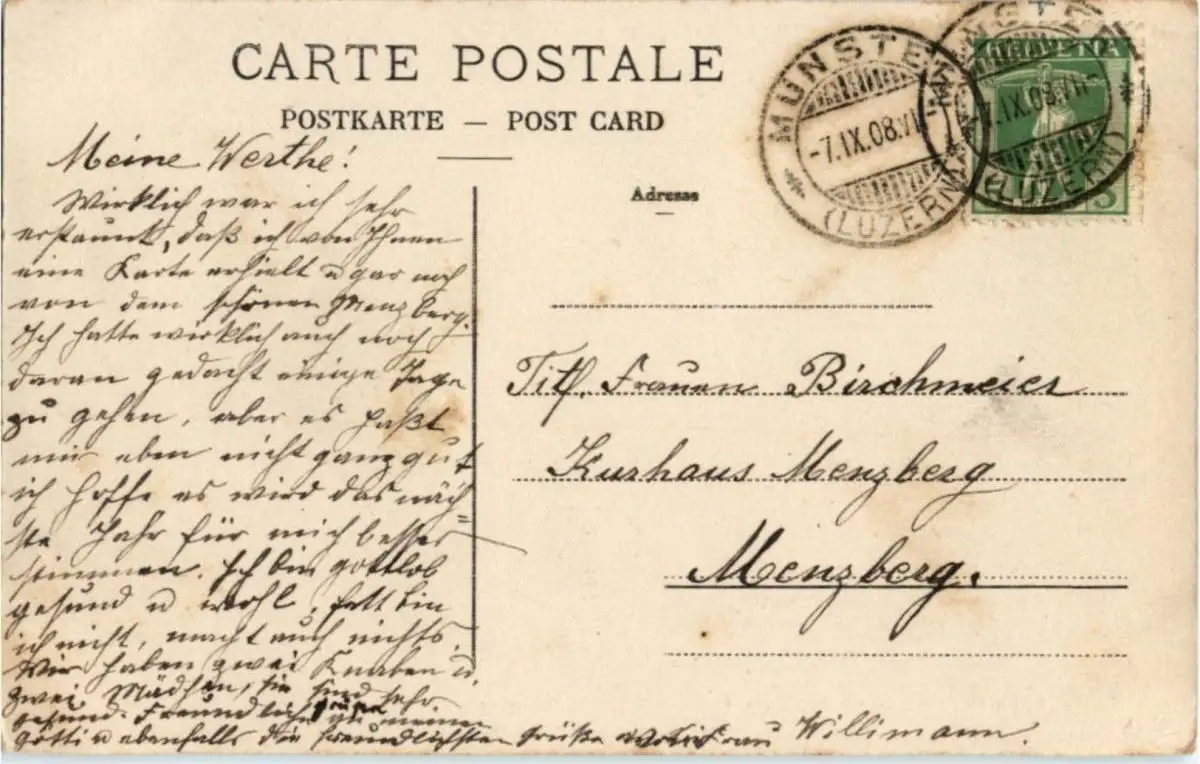 CARTE POSTALE
POSTKARTE — POST CARD
Adresse
MÜNSTER
-7.IX.08.VII
(LUZERN)
MÜNSTER
-7.IX.08.VII
(LUZERN)
HELVETIA
5
Meine Werthe!
Wirklich war ich sehr
erstaunt, daß ich von Ihnen
eine Karte erhielt u gar noch
von dem schönen Menzberg.
Ich hatte wirklich auch noch
daran gedacht einige Tage
zu gehen, aber es paßt
mir eben nicht ganz gut
ich hoffe es wird das näch=
ste Jahr für mich besser
stimmen. Ich bin gottlob
gesund u wohl, fett bin
ich nicht, macht auch nichts.
Wir haben zwei Knaben u.
zwei Mädchen, sie sind sehr
gesund. Freundliche Grüße zu meinen
Götti u ebenfalls die freundlichsten Grüße Frau Willimann.
Titl. Frauen Birchmeier
Kurhaus Menzberg
Menzberg.